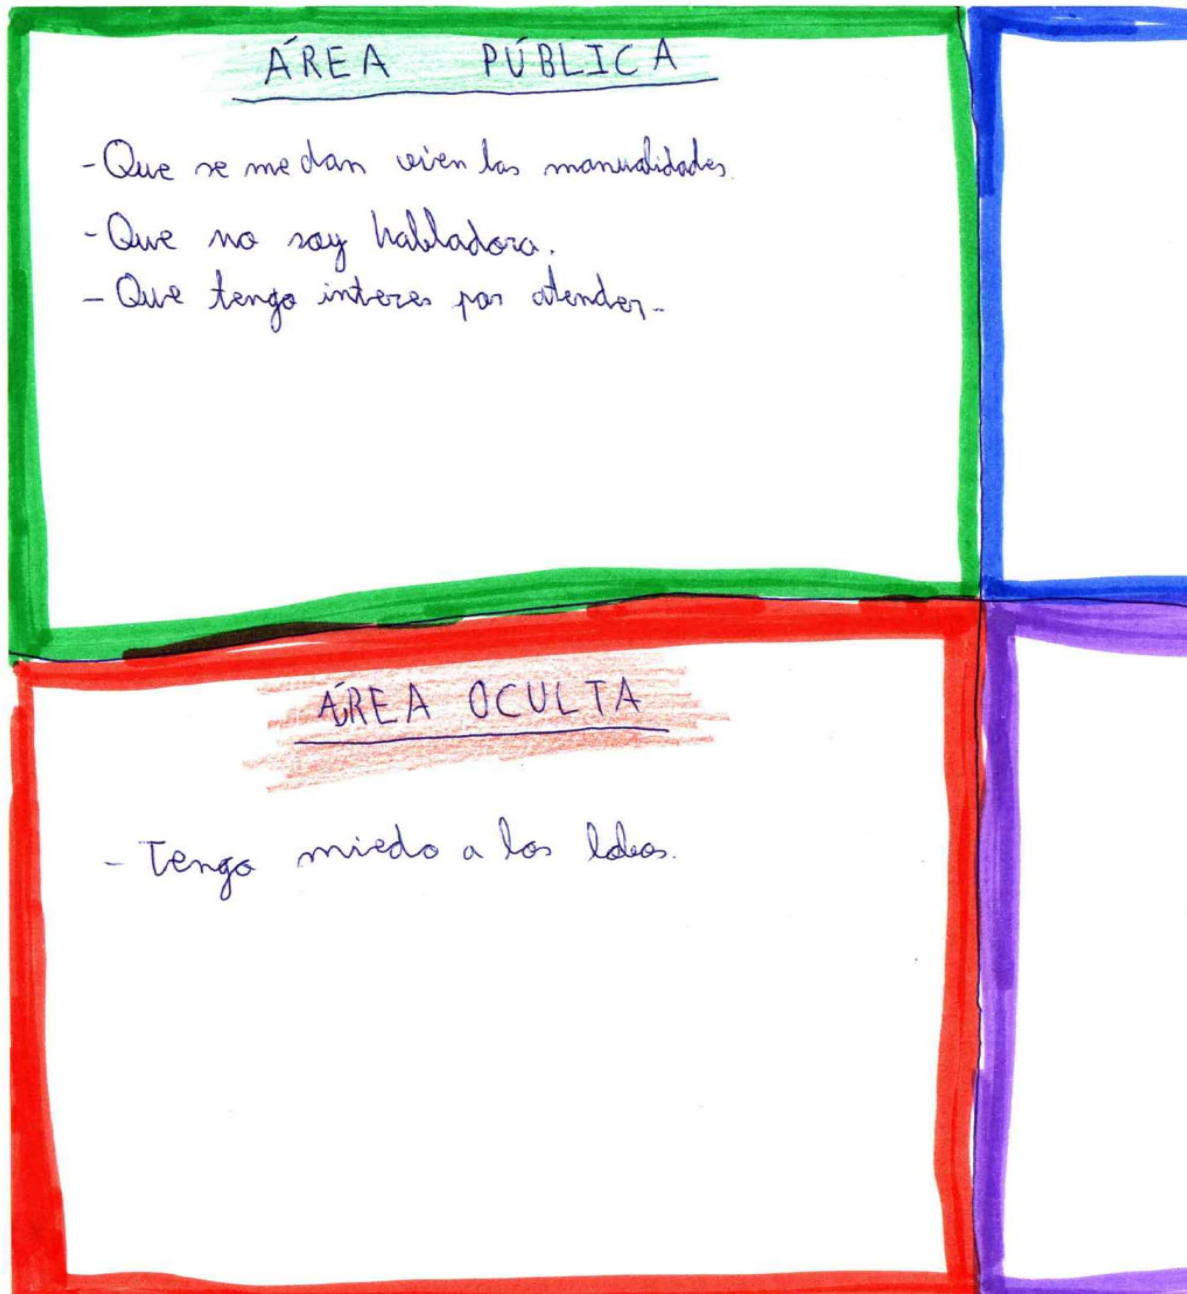 ÁREA PÚBLICA
- Que se me dan vien las manualidades.
- Que no soy habladora.
- Que tengo interes por atender.
ÁREA OCULTA
- Tengo miedo a los lobos.